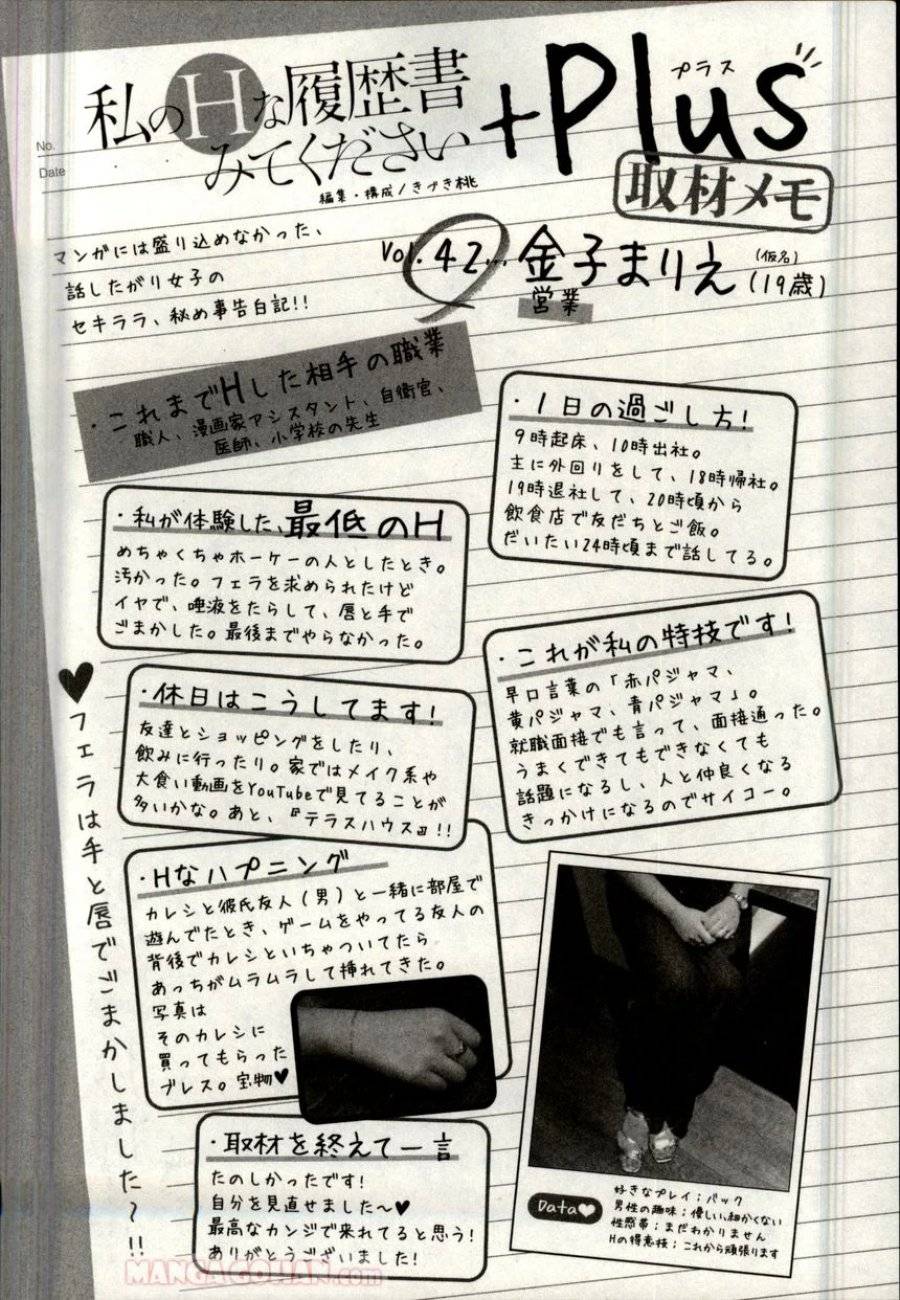 No.
Date
私のHな履歴書
みてください
+Plus
プラス
編集・構成/きづき桃
取材メモ
マンガには盛り込めなかった、
話したがり女子の
セキララ、秘め事告白記!!
Vol.42… 金子まりえ (仮名)
(19歳)
営業
・これまでHした相手の職業
職人、漫画家アシスタント、自衛官、
医師、小学校の先生
・1日の過ごし方!
9時起床、10時出社。
主に外回りをして、18時帰社。
19時退社して、20時頃から
飲食店で友だちとご飯。
だいたい24時頃まで話してる。
・私が体験した、最低のH
めちゃくちゃホーケーの人としたとき。
汚かった。フェラを求められたけど
イヤで、唾液をたらして、唇と手で
ごまかした。最後までやらなかった。
・これが私の特技です!
早口言葉の「赤パジャマ、
黄パジャマ、青パジャマ」。
就職面接でも言って、面接通った。
うまくできてもできなくても
話題になるし、人と仲良くなる
きっかけになるのでサイコー。
・休日はこうしてます!
友達とショッピングをしたり、
飲みに行ったり。家ではメイク系や
大食い動画をYouTubeで見てることが
多いかな。あと、『テラスハウス』!!
・Hなハプニング
カレシと彼氏友人(男)と一緒に部屋で
遊んでたとき、ゲームをやってる友人の
背後でカレシといちゃついてたら
あっちがムラムラして挿れてきた。
写真は
そのカレシに
買ってもらった
ブレス。宝物♥
・取材を終えて一言
たのしかったです!
自分を見直せました〜♥
最高なカンジで来れてると思う!
ありがとうございました!
♥フェラは手と唇でごまかしました〜!!
Data♥
好きなプレイ;バック
男性の趣味:優しい、細かくない
性感帯:まだわかりません
Hの得意技:これから頑張ります